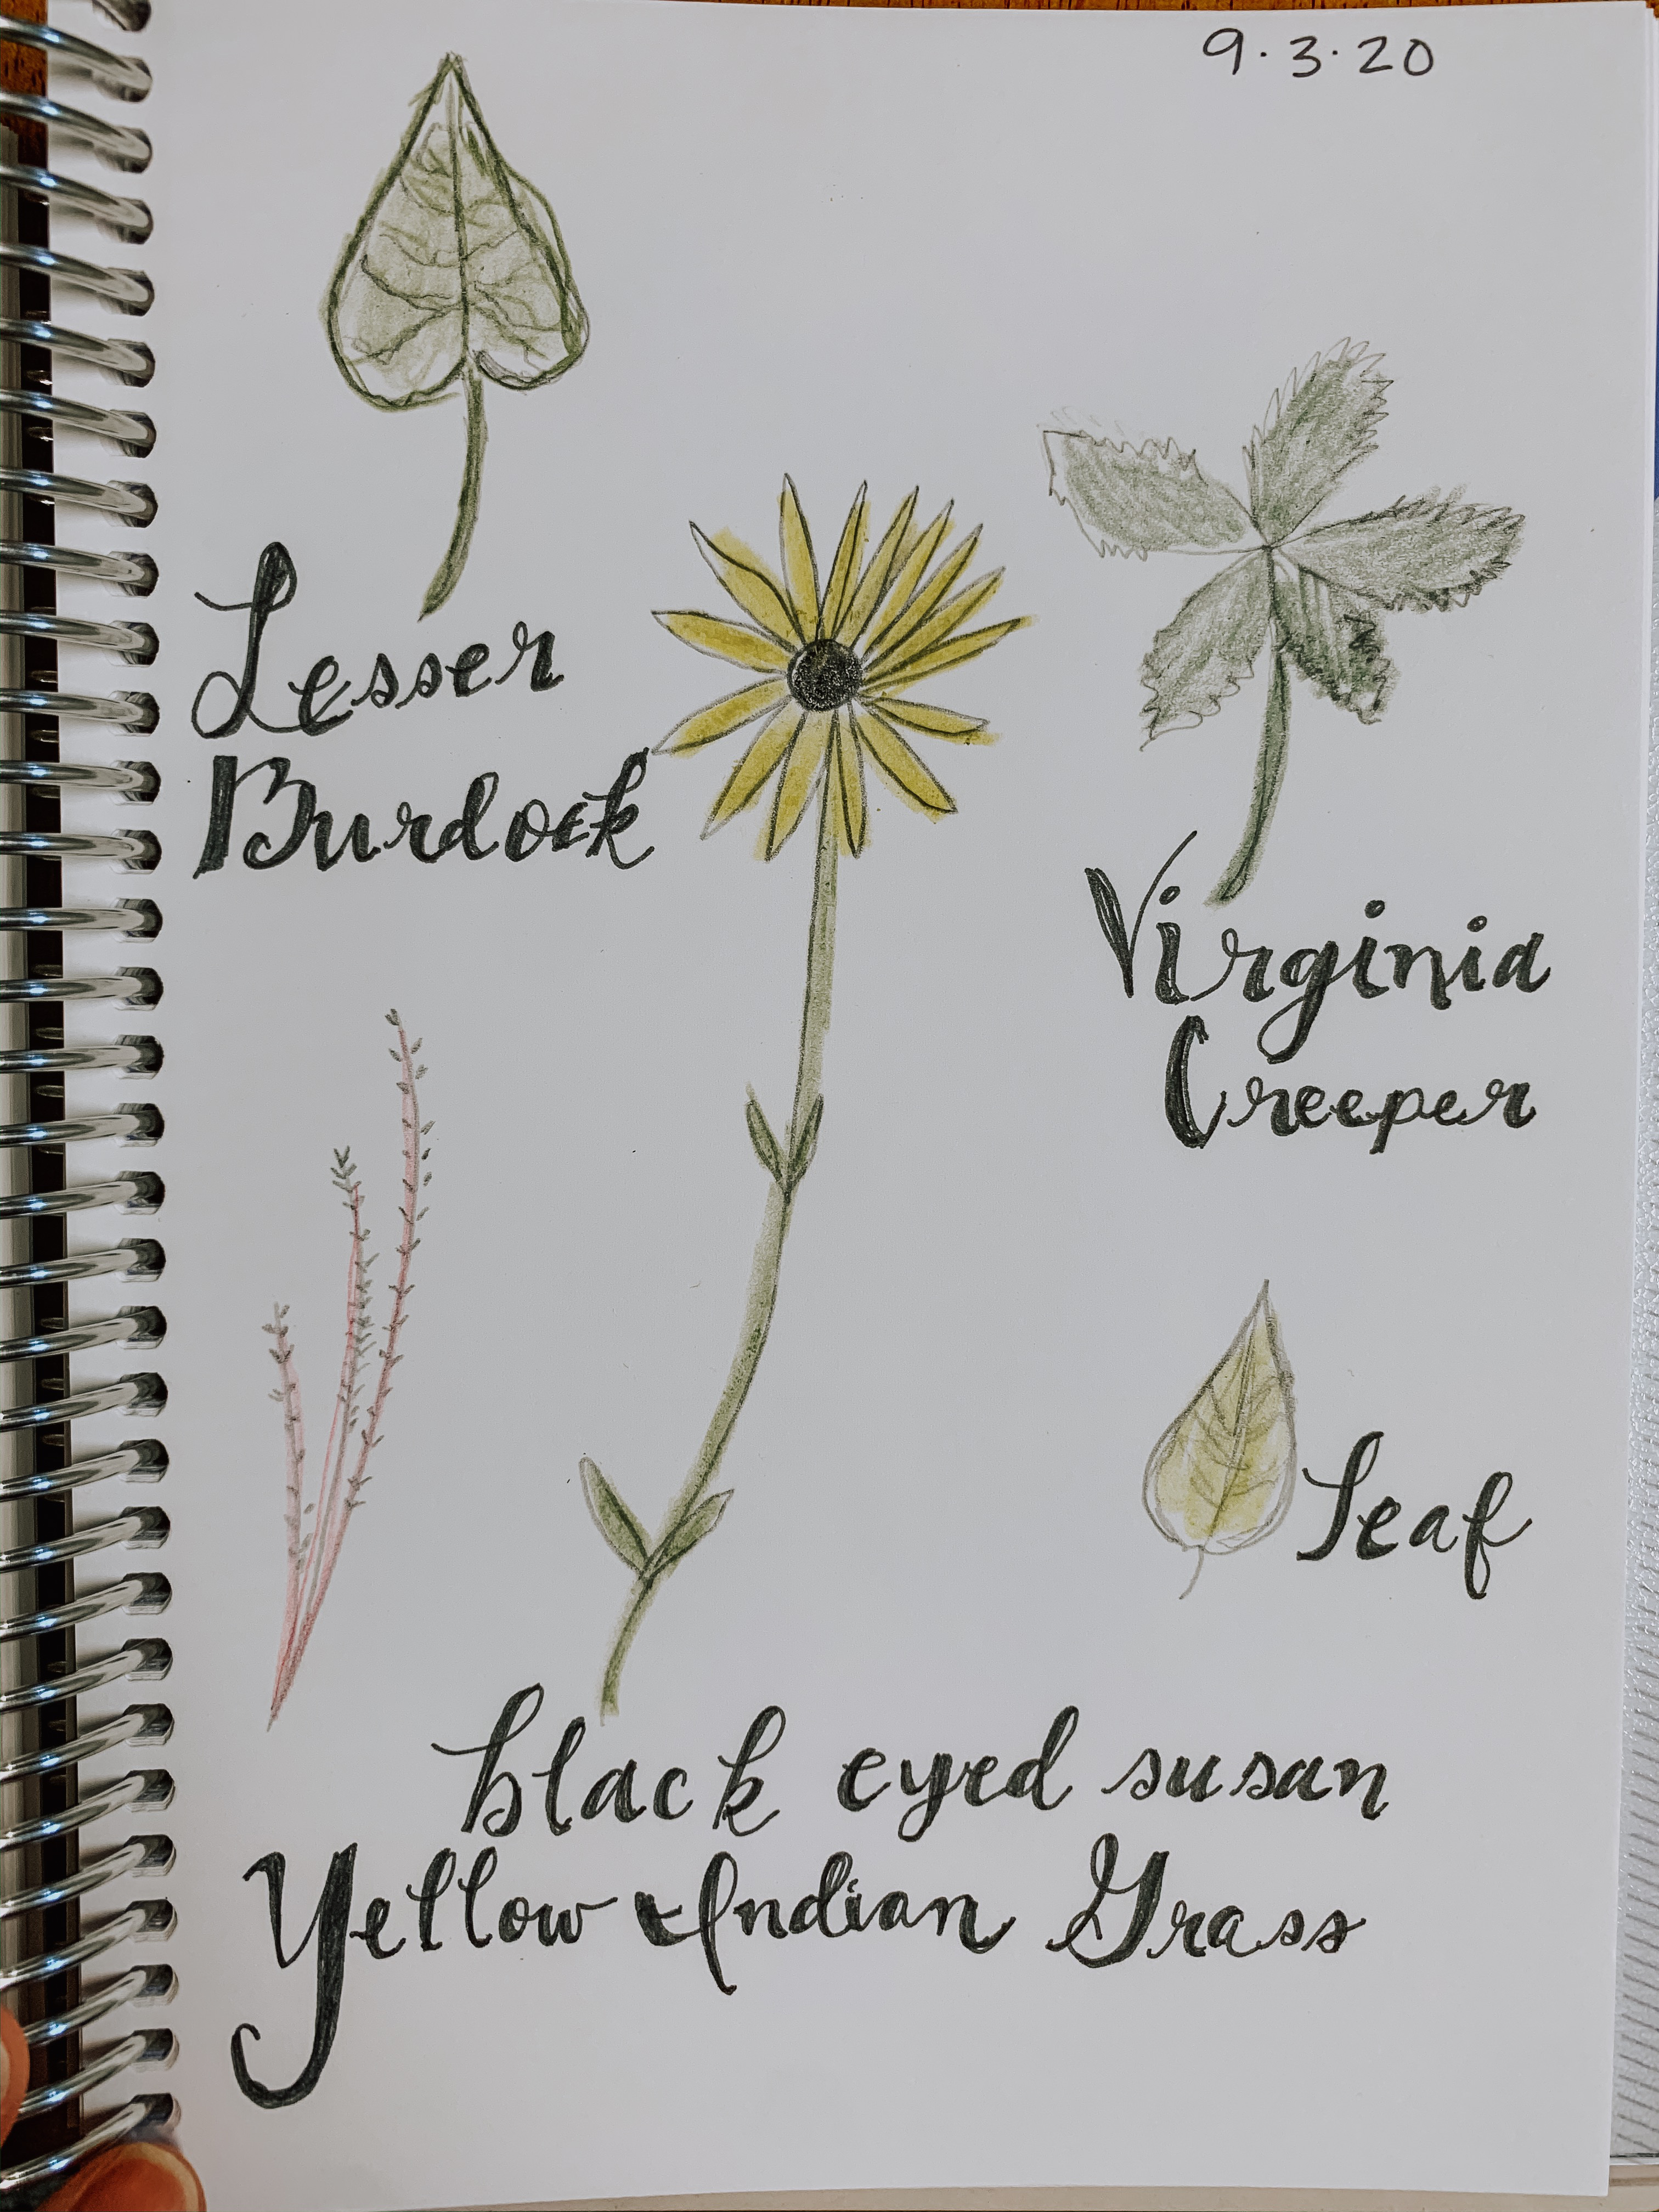 9.3.20
Lesser
Burdock
Virginia
Creeper
leaf
black eyed susan
Yellow Indian Grass